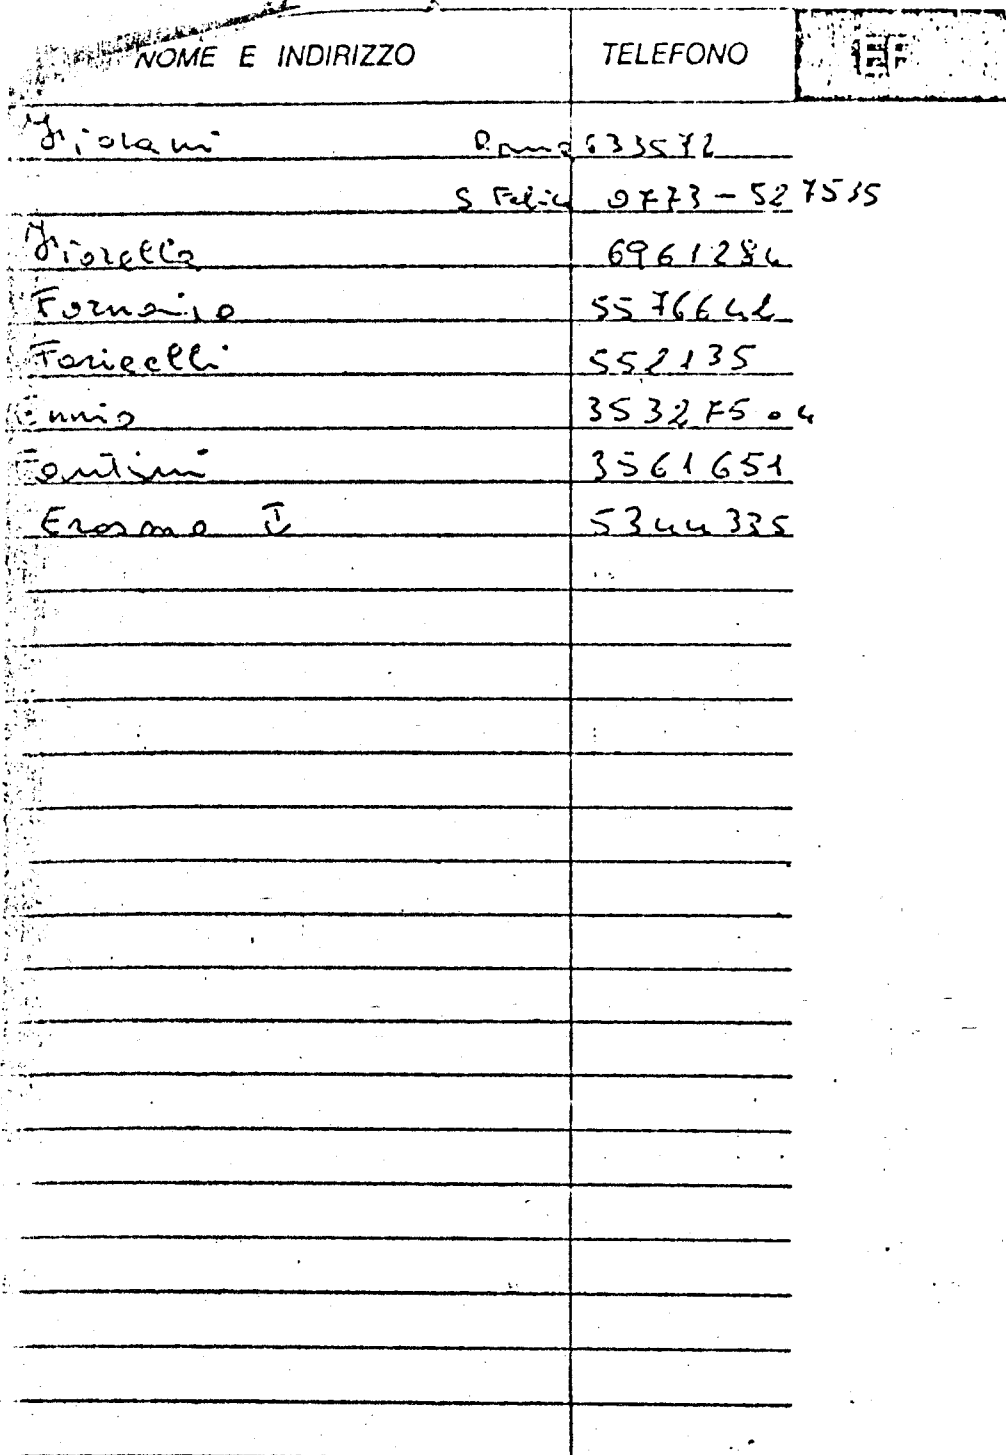 NOME E INDIRIZZO TELEFONO EF
Fiorani Roma 633572
S Felice 0773-527535
Fiorella 6961284
Fornaio 5576642
Faricelli 552135
Ennio 353275.4
Fantini 3561651
Erasmo 5344335